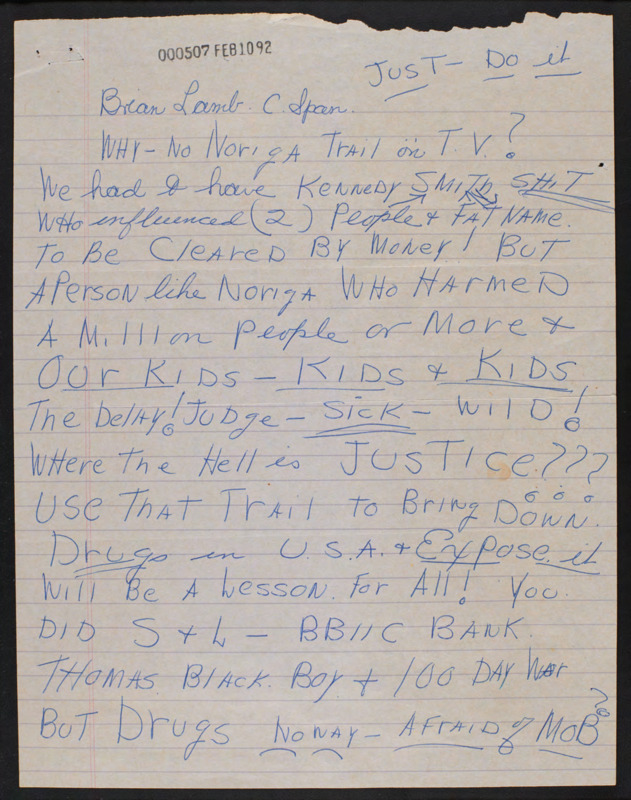 000507 FEB1092
JUST - DO it
Brian Lamb. C. Span.
WHY - NO NORIGA TRAIL on T.V.?
We had to have KENNEDY SMITH SHIT
WHO influenced (2) People & FAT NAME.
TO BE CLEARED BY MONEY! BUT
A PERSON like NORIGA WHO HARMED
A Million People or More &
OUR KIDS - KIDS & KIDS
The Delay! JUDGE - SICK - WILD!
WHERE The Hell is JUSTICE???
USE THAT TRAIL to BRING DOWN.
Drugs in U.S.A. & Expose it
Will Be A Lesson. For All! You
DID S & L - BBIIC BANK.
THOMAS BLACK. BOY & 100 DAY War
BUT Drugs NOWAY - AFRAID of MOB?